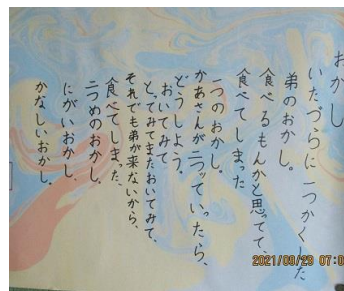 おかし
いたづらに一つかくした
弟のおかし。
食べるもんかと思ってて、
食べてしまった
一つのおかし。
かあさんが二つッていったら、
どうしよう。
おいてみて
とってみてまたおいてみて、
それでも弟が来ないから、
食べてしまった、
二つめのおかし。
にがいおかし、
かなしいおかし。
2021/09/29 07:0